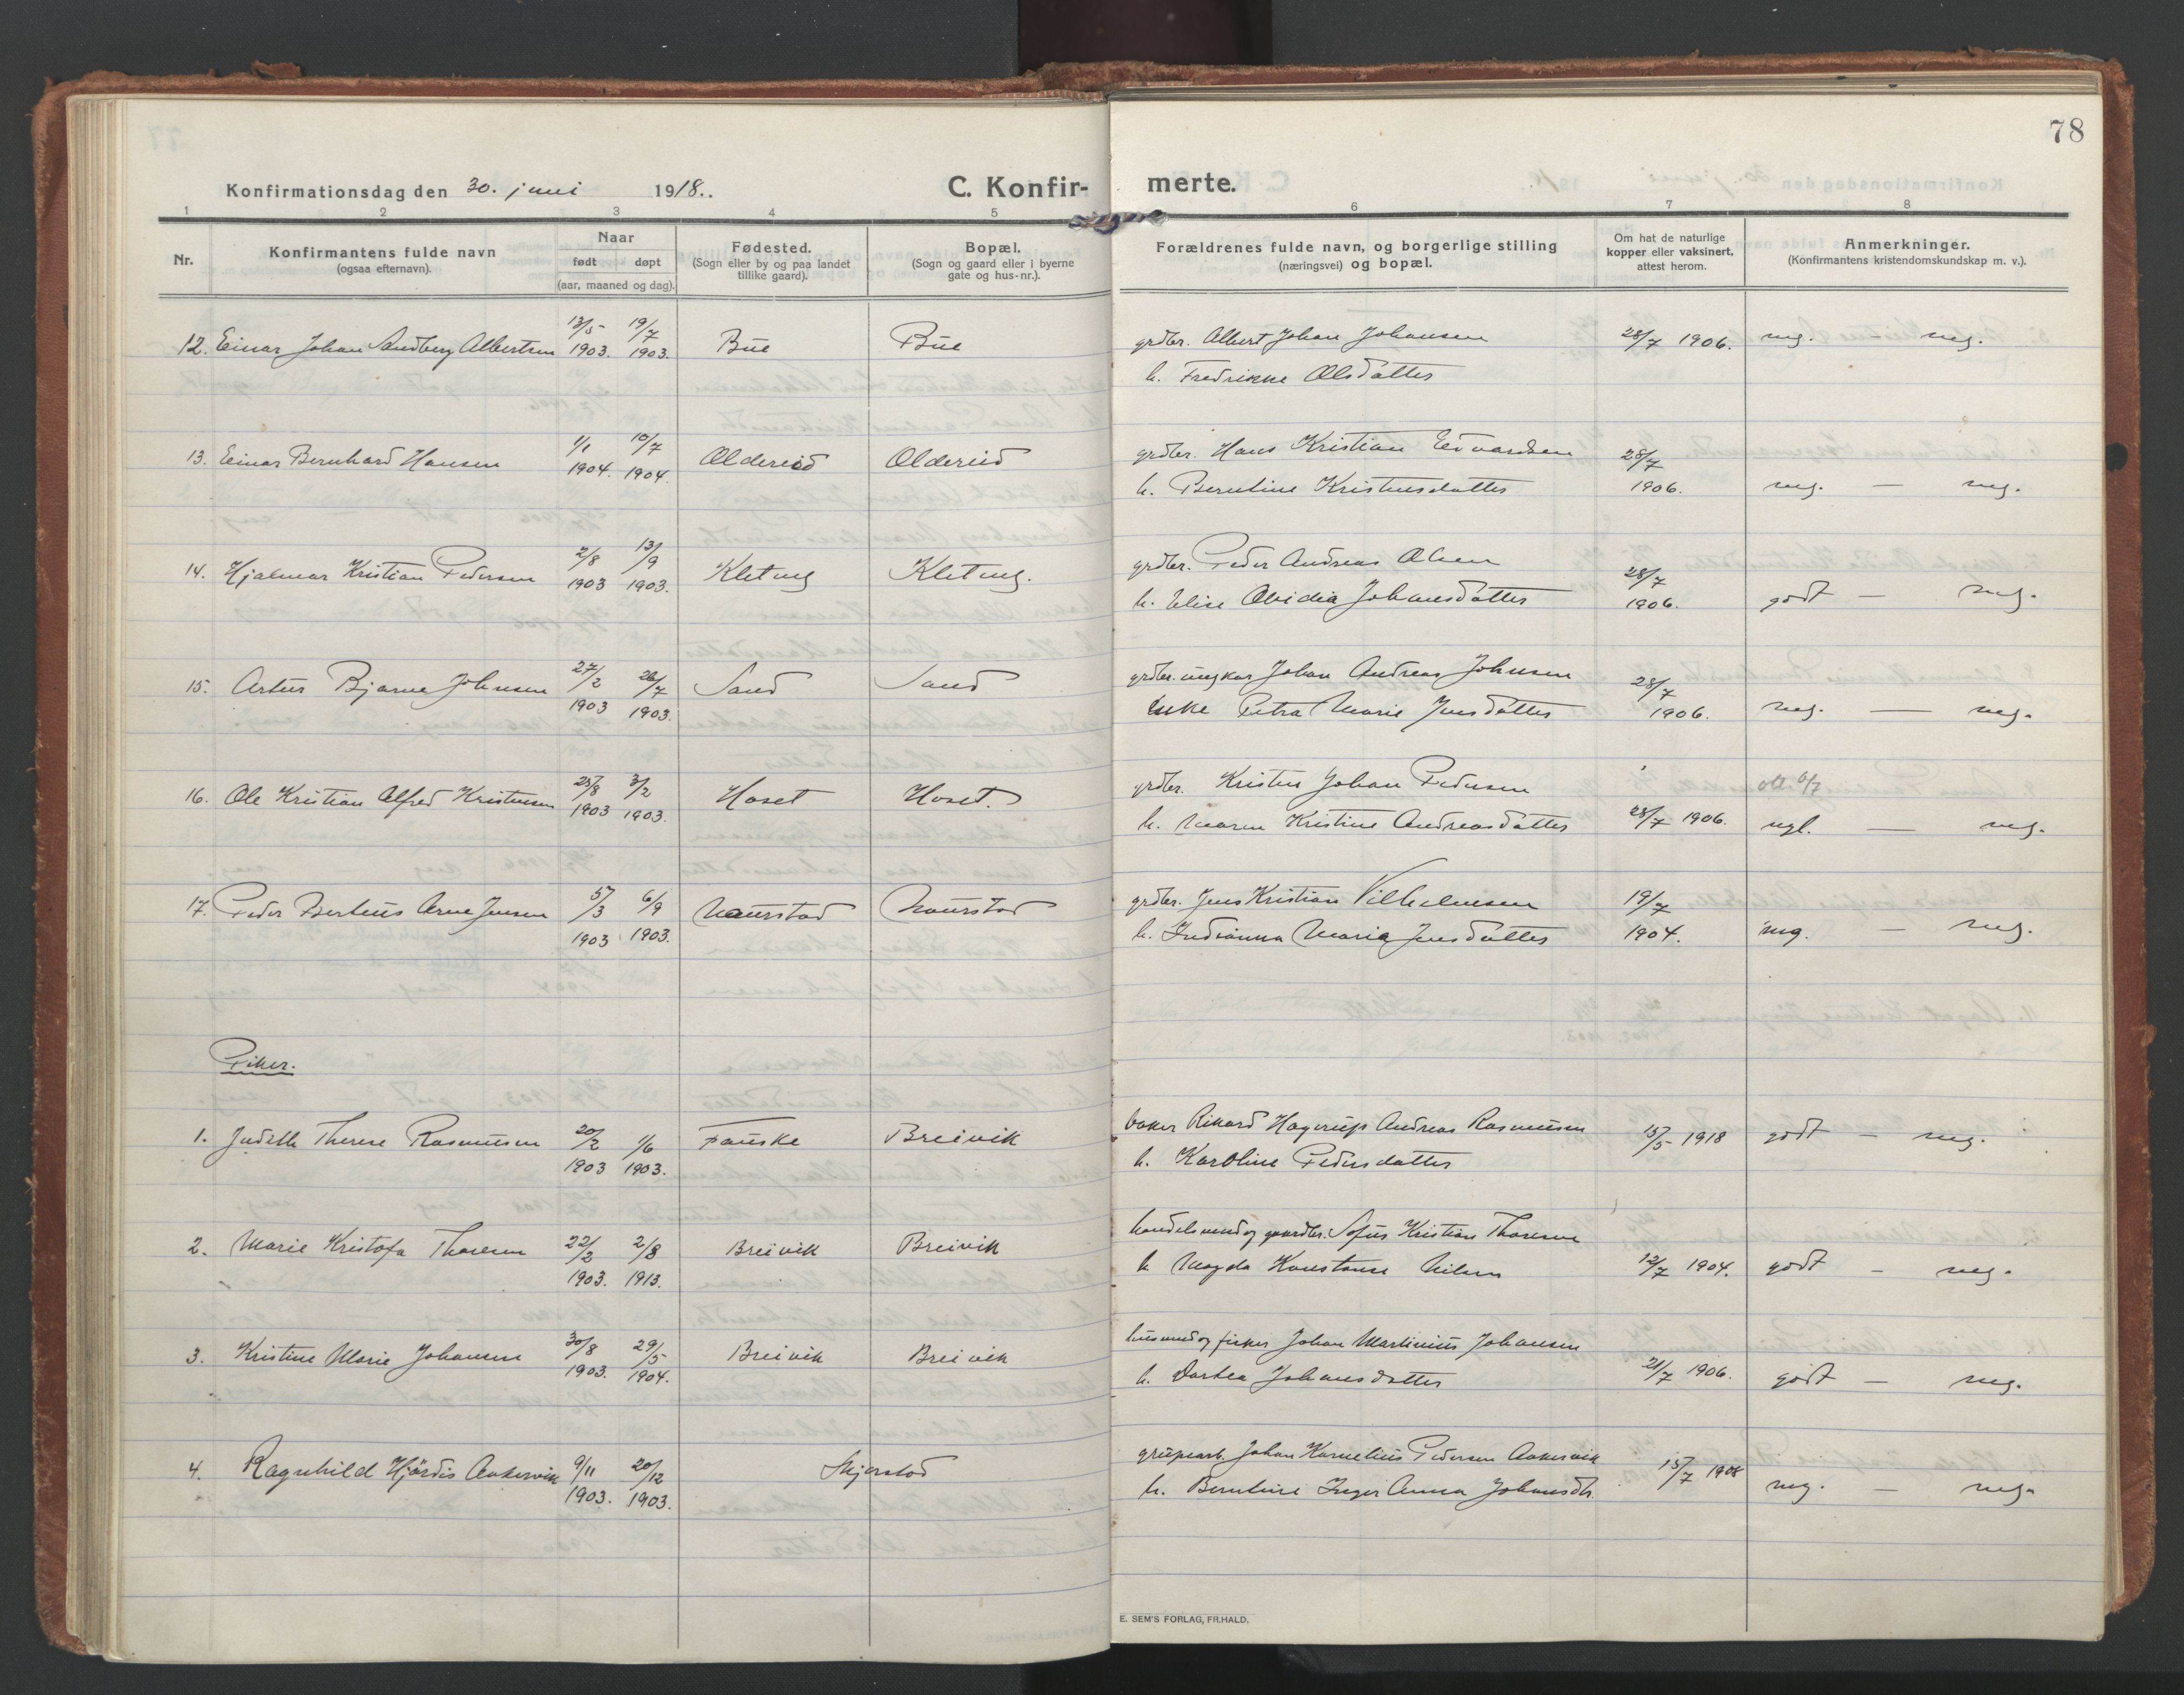 78
Konfirmationsdag den 30. juni 1918.. C. Konfir- merte.
1 2 3 4 5 6 7 8
Nr. Konfirmantens fulde navn (ogsaa efternavn). Naar født døpt (aar, maaned og dag). Fødested. (Sogn eller by og paa landet tillike gaard). Bopæl. (Sogn og gaard eller i byerne gate og hus-nr.). Forældrenes fulde navn, og borgerlige stilling (næringsvei) og bopæl. Om hat de naturlige kopper eller vaksinert, attest herom. Anmerkninger. (Konfirmantens kristendomskundskap m. v.).
12. Einar Johan Sandberg Albertsen 13/5 1903. 19/7 1903. Bue Bue grdbr. Albert Johan Johansen 28/7 1906. mg. - mg.
h. Fredrikke Olsdatter
13. Einar Bernhard Hansen 1/1 1904. 10/7 1904 Oldereid Oldereid grdbr. Hans Kristian Edvardsen 28/7
h. Berntine Kristensdatter 1906. mg. - mg.
14. Hjalmar Kristian Pedersen 2/8 1903 13/9 1903. Kletng Kletng. grdbr. Peder Andreas Olsen 28/7
h. Elise Obidia Johansdatter 1906. godt - mg.
15. Artur Bjarne Johnsen 27/2 1903 26/7 1903. Sand Sand grdbr. ungkar Johan Andreas Johnsen 28/7
enke Petra Marie Jensdatter 1906. mg. - mg.
16. Ole Kristian Alfred Kristensen 25/8 1903 3/2 1903. Hoset Hoset. grdbr. Kristen Johan Pedersen
h. Maren Kristine Andreasdatter 28/7 1906. ugl. - mg.
17. Peder Berteus Arne Jensen 5/3 1903 6/9 1903. Naurstad Naurstad grdbr. Jens Kristian Vilhelmsen 19/7
h. Indianna Maria Jensdatter 1904. mg. - mg.
Piker.
1. Judith Therese Rasmussen 20/2 1903 1/6 1903. Fauske Breivik baker Rikard Hagerup Andreas Rasmussen 15/5 1918 godt - mg.
h. Karoline Pedersdatter
2. Marie Kristofa Thoresen 22/2 1903. 2/8 1913. Breivik Breivik handelsmand og gaardbr. Sofus Kristian Thoresen
h. Magda Konstanse Nilsen 12/7 1904. godt - mg.
3. Kristine Marie Johansen 30/8 1903. 29/5 1904. Breivik Breivik husmand og fisker Johan Martinius Johansen
h. Dortea Johansdatter 21/7 1906. godt - mg.
4. Ragnhild Hjördis Aakervik 9/11 1903. 20/12 1903. Skjerstad grubearb. Johan Kornelius Pedersen Aakervik 15/7 1908
h. Berntine Inger Anna Johansdtr. mg. - mg.
E. SEM'S FORLAG, FR.HALD.